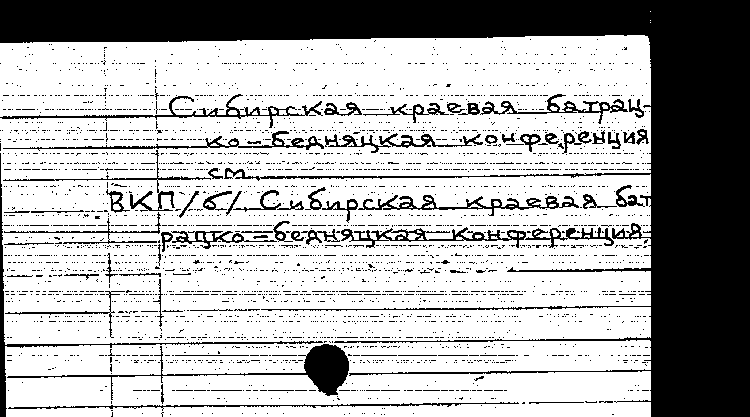 Сибирская краевая батрац-
ко-бедняцкая конференция
см.
ВКП/б/. Сибирская краевая бат
рацко-бедняцкая конференция.